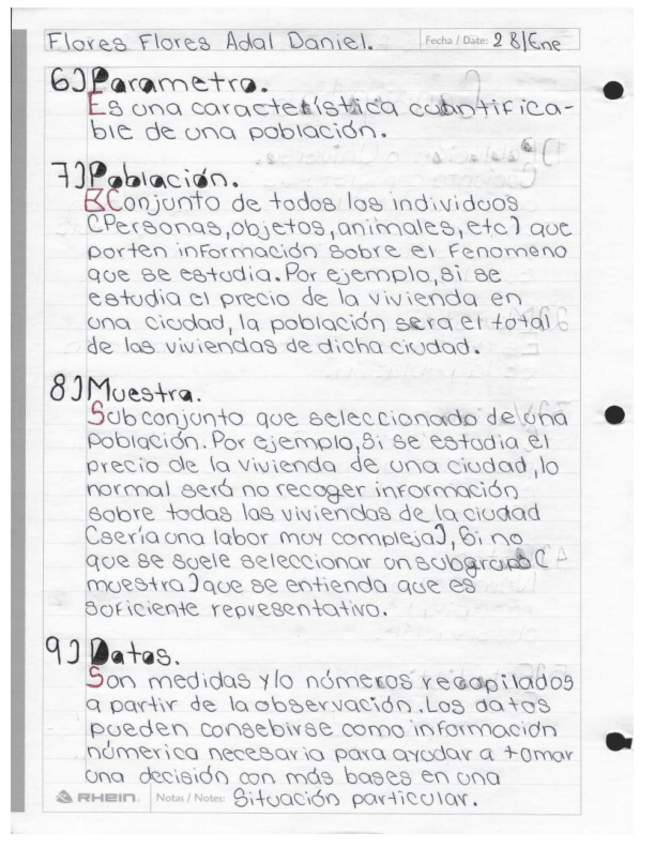 Flores Flores Adal Daniel. Fecha / Date: 28/Ene
6) Parametro.
Es una característica cuantifica-
ble de una población.
7) Población.
Conjunto de todos los individuos
(Personas, objetos, animales, etc) que
porten información sobre el Fenomeno
que se estudia. Por ejemplo, si se
estudia el precio de la vivienda en
una ciudad, la población sera el total
de las viviendas de dicha ciudad.
8) Muestra.
Subconjunto que seleccionado de una
población. Por ejemplo, Si se estudia el
precio de la vivienda de una ciudad, lo
normal será no recoger información
sobre todas las viviendas de la ciudad
(sería una labor muy compleja), Si no
que se suele seleccionar un subgrupo (
muestra) que se entienda que es
suficiente representativo.
9) Datos.
Son medidas y/o números recopilados
a partir de la observación. Los datos
pueden consebirse como información
númerica necesaria para ayudar a tomar
una decisión con más bases en una
RHEIN. Notas / Notes: Situación particular.